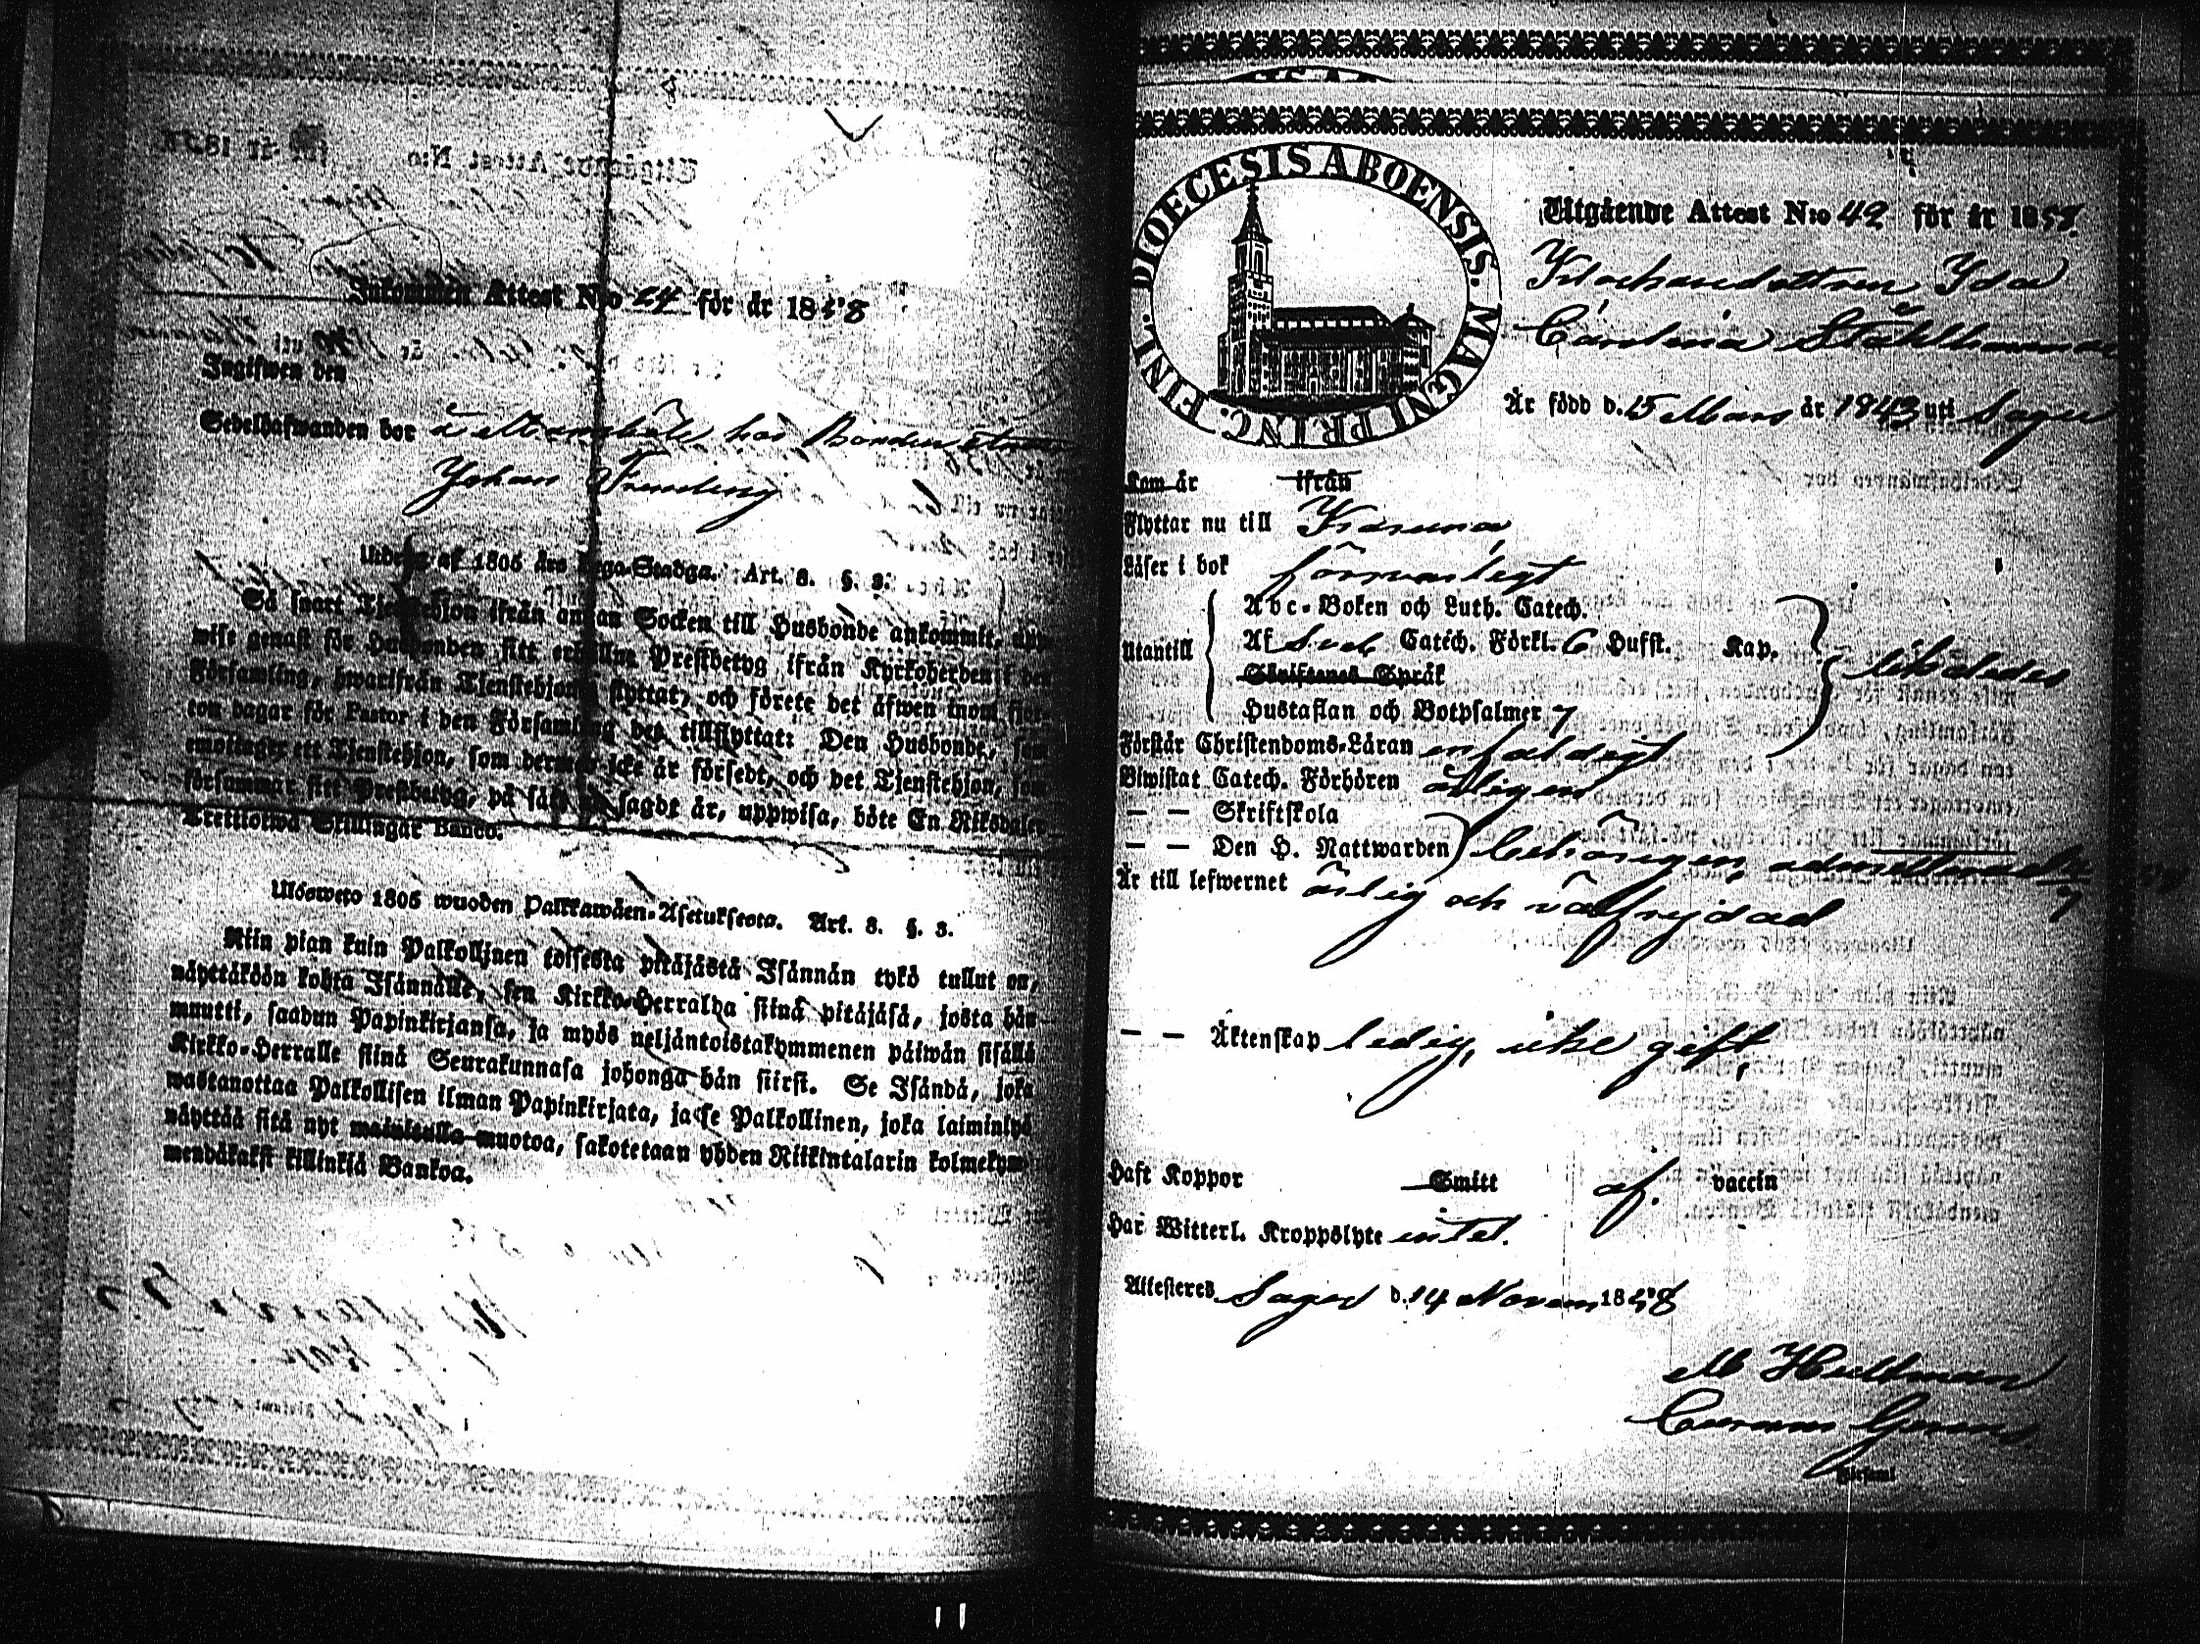 Inkommen Attest N:o 24 för år 1858
Ingifwen den
Sedelhafwanden bor i hos Bonden
Johan
Utdrag af 1805 års Lego-Stadga. Art. 8. §. 3.
Så snart Tjenstehjon ifrån annan Socken till Husbonde ankommit,
wise genast för Husbonden sitt erhållna Prestbetyg ifrån Kyrkoherden i den
Församling, hwarifrån Tjenstehjonet flyttat, och förete det äfwen inom fjor-
ton dagar för Pastor i den Församling det tillflyttat: Den Husbonde, som
emottager ett Tjenstehjon, som dermed icke är försedt, och det Tjenstehjon, som
försummar sitt Prestbetyg, på sätt sagdt är, uppwisa, böte En Riksdaler
Trettiotwå Skillingar Banco.
Ulösweto 1805 wuoden Palkkawäen-Asetuksesta. Art. 8. §. 3.
Niin pian kuin Palkollinen toisesta pitäjästä Isännän tykö tullut on,
näyttäköön kohta Isännälle, sen Kirkko-Herralda siinä pitäjäsä, josta hän
muutti, saadun Papinkirjansa, ja myös neljäntoistakymmenen päiwän sisällä
Kirkko-Herralle siinä Seurakunnasa johonga hän siirsi. Se Isändä, joka
wastanottaa Palkollisen ilman Papinkirjata, ja se Palkollinen, joka laiminlyö
näyttää sitä nyt mainitulla muotoa, sakotetaan yhden Riikintalarin kolmekym-
mendäkaksi killinkiä Bankoa.
DIOECESIS ABOENSIS. MAGNI PRINC. FINL.
Utgående Attest N:o 42 för år 1858.
Ida
Carolina Stålhammar
Är född d. 15 Mars år 1843 uti Sagu
Kom år ifrån
Flyttar nu till Karuna
Läser i bok försvarligt
Utantill
Abc-Boken och Luth. Catech.
Af Sveb Catech. Förkl. 6 Hufst. Kap.
Skriftenes Språk
Hustaflan och Botpsalmer 7
likaledes
Förstår Christendoms-Läran enfaldigt
Biwistat Catech. Förhören årligen
— — Skriftskola
— — Den H. Nattwarden behörigen, admitterad
Är till lefwernet ärlig och välfrejdad
— — Äktenskap ledig, icke gift,
Haft Koppor Smitt af. vaccin
Har Witterl. Kroppslyte intet.
Attesteres Sagu d. 14 Novem 1858
M Hultman
Församl